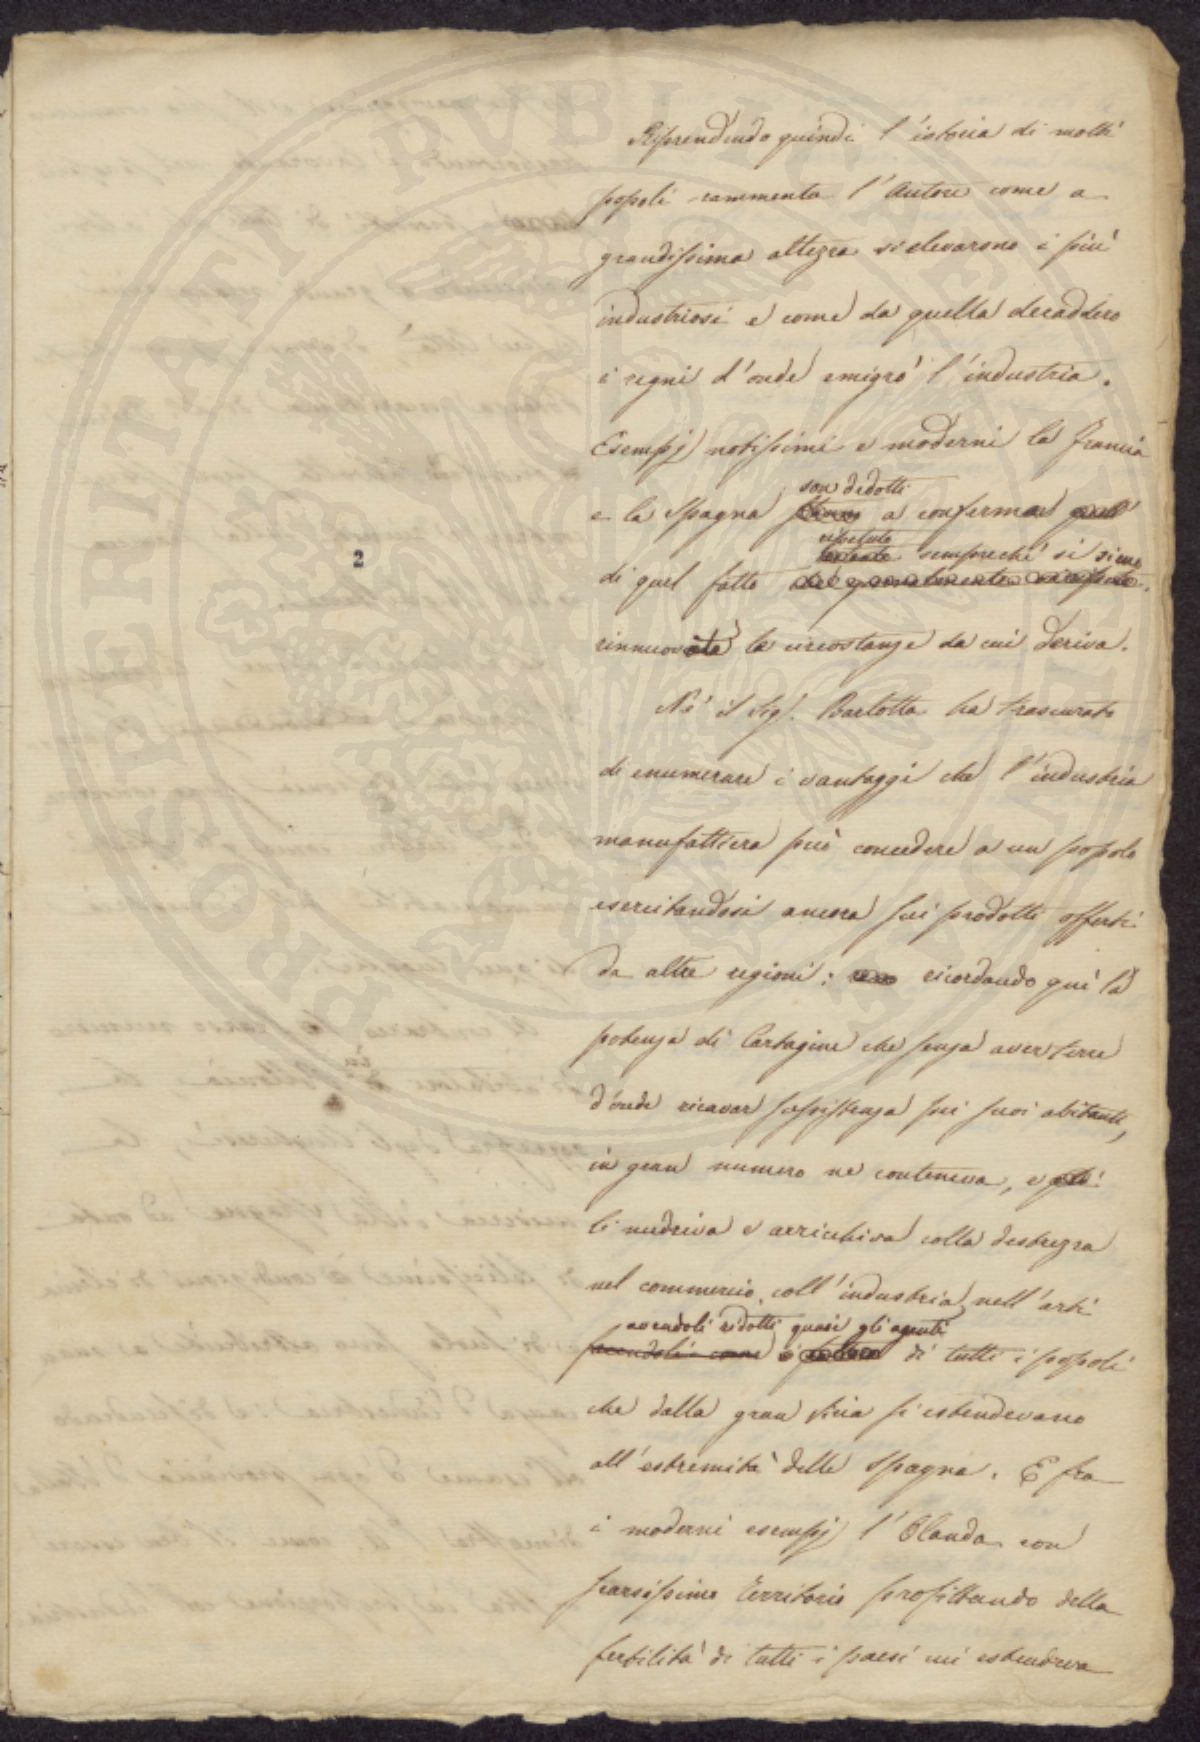 Riprendendo quindi l'istoria di molti
popoli rammenta l'Autore come a
grandissima altezza si elevarono i più
industriosi e come da quella decaddero
i regni d'onde emigrò l'industria.
Esempj notissimi e moderni la Francia
son dedotti
e la Spagna a confermar
ripetuto sempreché si siene
di quel fatto
rinnuovate le circostanze da cui deriva.
Né il Sigr. Bartotta ha trascurato
di enumerare i vantaggi che l'industria
manufattiera può concedere a un popolo
esercitandosi ancora sui prodotti offerti
da altre regioni: ricordando quì la
potenza di Cartagine che senza aver terre
d'onde ricavar sussistenza pei suoi abitanti,
in gran numero ne conteneva, e
li nudriva e arricchiva colla destrezza
nel commercio, coll'industria nell'arti
avendoli ridotti quasi gli agenti
facendoli come di tutti i popoli
che dalla gran Siria si estendevano
all'estremità delle Spagne. E fra
i moderni esempj l'Olanda con
scarsissimo territorio profittando della
fertilità di tutti i paesi cui estendeva
2
PROSPERITATI PVBLICAE